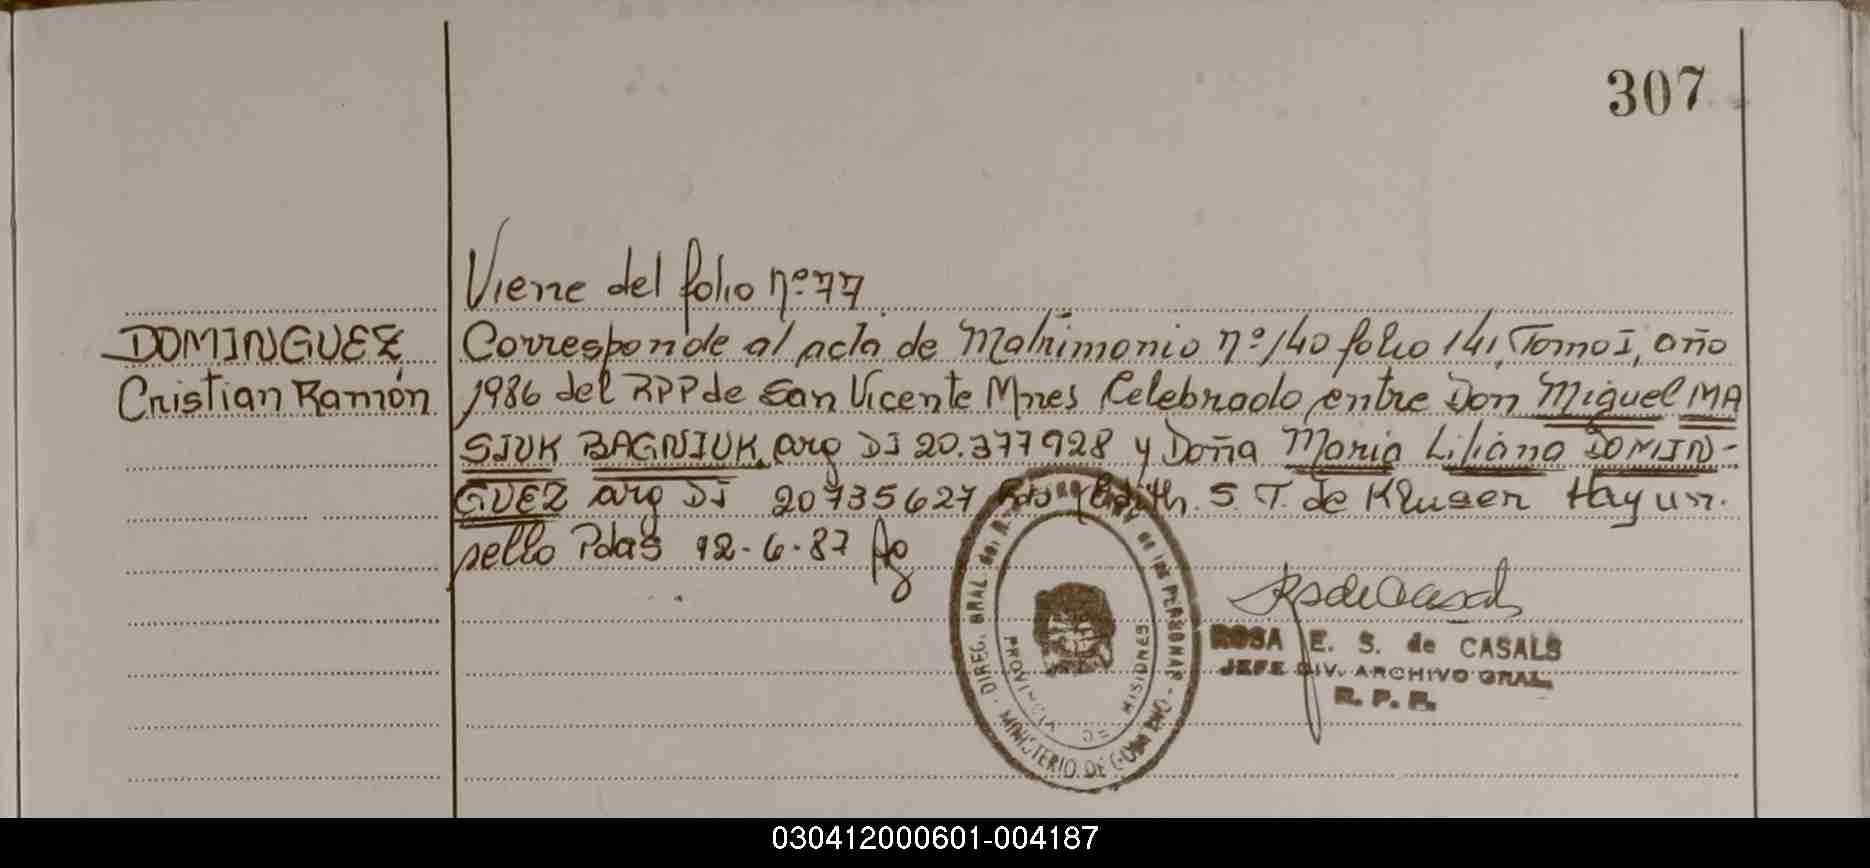 307
Viene del folio nº 77
DOMINGUEZ
Cristian Ramón
Corresponde al acta de Matrimonio nº 140 folio 141, Tomo I, año
1986 del RPP de San Vicente Mnes Celebrado entre Don Miguel MA
SIUK BAGNIUK arg DI 20.377928 y Doña Maria Liliana DOMIN-
GUEZ arg DI 20735627 Fdo Edith. S. T. de Kluser Hay un
sello Pdas 12-6-87
DIREC. GRAL. del R. DE LAS PERSONAS - MINISTERIO DE GOBIERNO -
PROVINCIA DE MISIONES
ROSA E. S. de CASALS
JEFE DIV. ARCHIVO GRAL.
R. P. P.
030412000601-004187